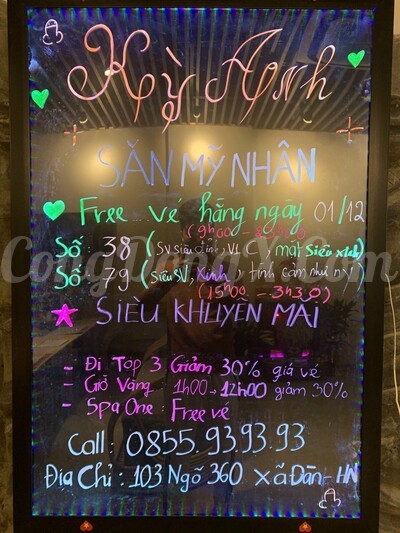 Kỳ Anh
SĂN MỸ NHÂN
Free vé hằng ngày 01/12
Số: 38 (SV siêu
Số: 79 (Siêu SV, Xinh, tình cảm như ny)
(15h00 - 3h30)
SIÊU KHUYẾN MÃI
- Đi Top 3 Giảm 30% giá vé
- Giờ Vàng 1h00 - 12h00 giảm 30%
- Spa One: Free vé
Call: 0855.93.93.93
Địa Chỉ: 103 Ngõ 360 Xã Đàn - HN